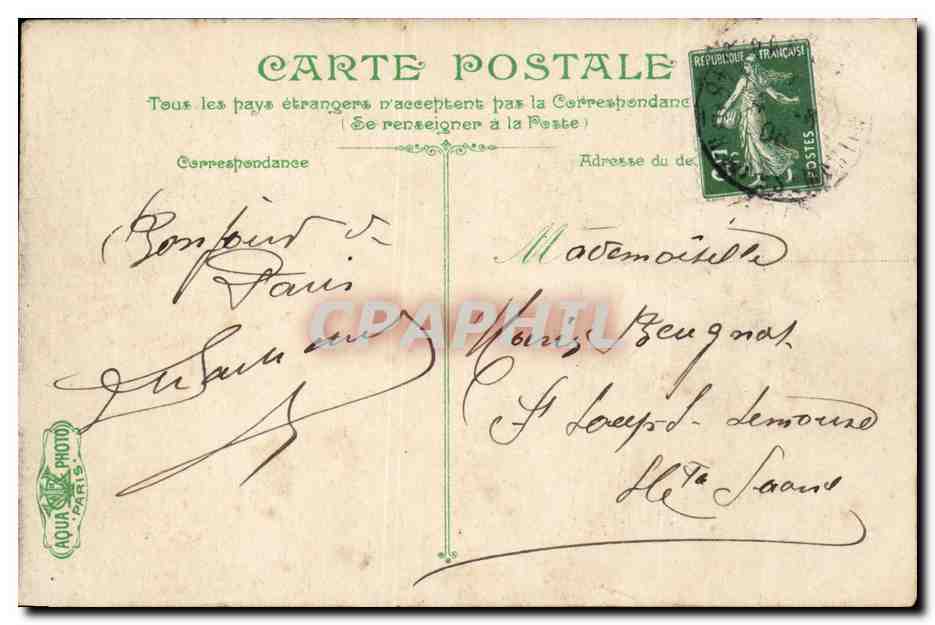 CARTE POSTALE
Tous les pays étrangers n'acceptent pas la Correspondanc
(Se renseigner à la Poste)
Correspondance
Adresse du de
RÉPUBLIQUE FRANÇAISE
POSTES
Bonjour de
Paris
Mademoiselle
Marie Beugnot
St Loup s- Semouse
Hte Saone
CPAPHIL
AQUA PHOTO
PARIS